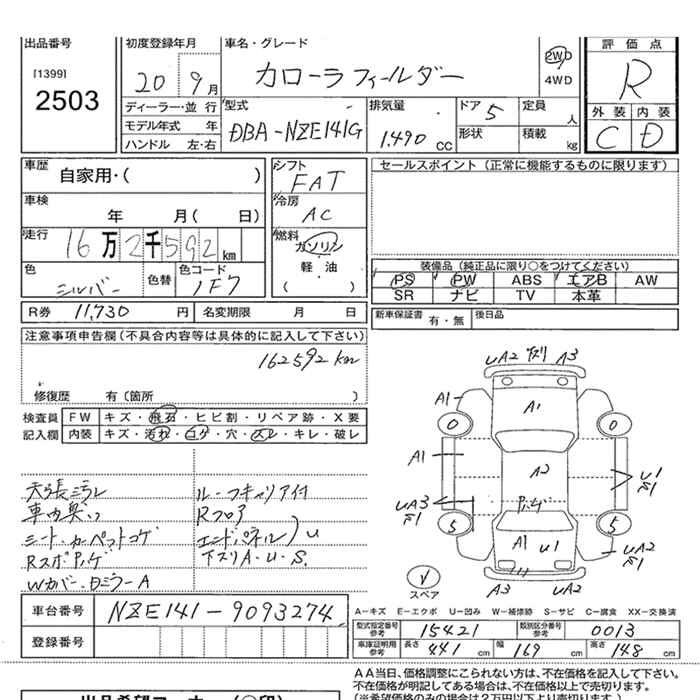 出品番号
[1399]
2503
初度登録年月
20 9月
ディーラー・並行
モデル年式 年
ハンドル 左・右
車名・グレード
カローラフィールダー
2WD
4WD
型式
DBA-NZE141G
排気量
1.490 CC
ドア 5
形状
定員 人
積載 kg
評価点
R
外装 内装
C D
車歴
自家用・( )
車検
年 月( 日)
走行
16万2千592km
色
シルバー
色替
色コード
1F7
シフト
FAT
冷房
AC
燃料
ガソリン
軽・油
( )
セールスポイント(正常に機能するものに限ります)
装備品(純正品に限り○をつけてください)
PS PW ABS エアB AW
SR ナビ TV 本革
R券 11,730 円
名変期限 月 日
新車保証書 有・無
後日品
注意事項申告欄(不具合内容等は具体的に記入して下さい)
162592km
修復歴 有(箇所 )
検査員
記入欄
FW キズ・飛石・ヒビ割・リペア跡・X要
内装 キズ・汚れ・コゲ・穴・スレ・キレ・破レ
天張ミラレ
シート・カーペットコゲ
Wカバー・ミラーA
ルーフキャリア付
Rフロア
エンドパネル)U
下スリA・U・S.
UA2 A3
A1
A1
A1
A2
UA3
U1
A1 U1
UA2
A3 UA2
0 0
5 5
スペア
A-キズ E-エクボ U-凹み W-補修跡 S-サビ C-腐食 XX-交換済
車台番号
NZE141-9093274
登録番号
型式指定番号
参考
15421
類別区分番号
参考
0013
車庫証明用
参考
長さ 441 cm
幅 169 cm
高さ 148 cm
AA当日、価格調整にこられない方は、不在価格を記入して下さい。
不在価格が明記してある場合は、不在価格以上で売切ります。